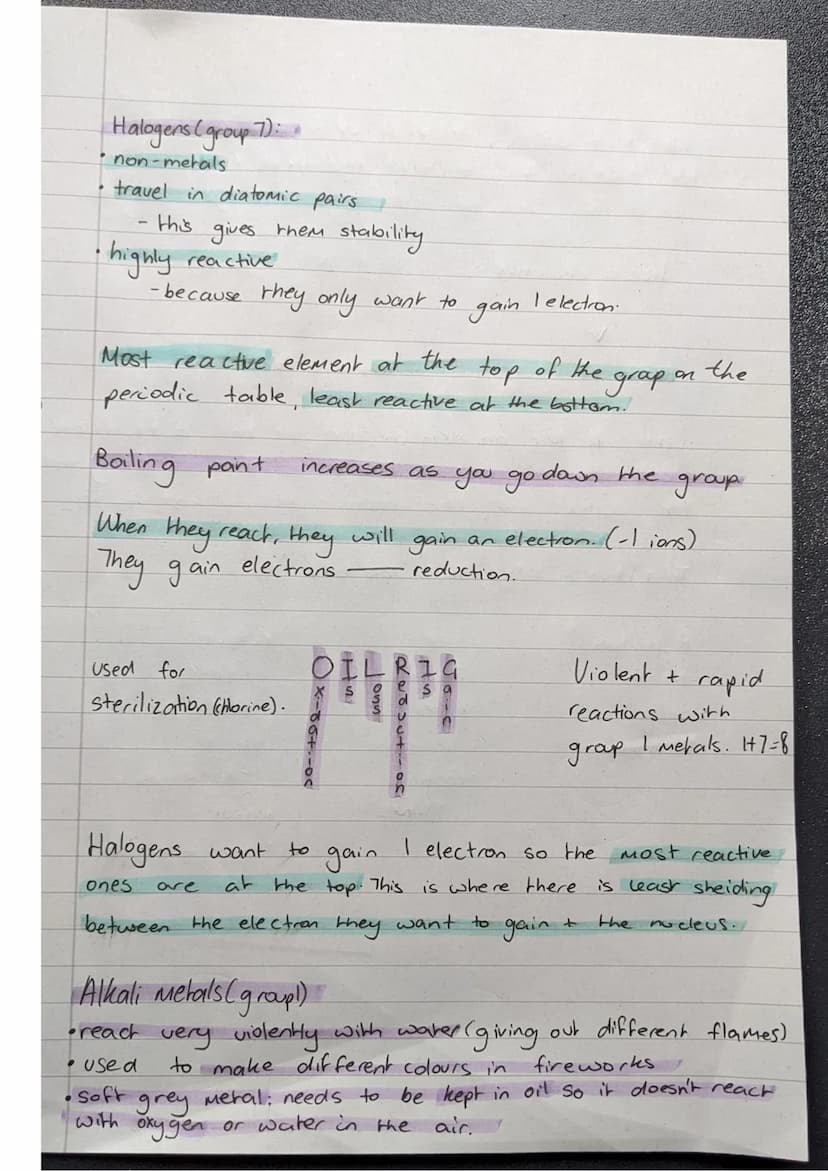 Halogens (group 7):
• non-metals
• travel in diatomic pairs
- this gives them stability
• highly reactive
- because they only want to gain 1 electron.
Most reactive element at the top of the group on the
periodic table, least reactive at the bottom.
Boiling point increases as you go down the group
When they react, they will gain an electron. (-1 ions)
They gain electrons — reduction.
used for
sterilization (chlorine).
OIL RIG
Oxidation
Is
Loss
Reduction
Is
Gain
Violent + rapid
reactions with
group 1 metals. 1+7=8
Halogens want to gain 1 electron so the most reactive
ones are at the top. This is where there is least sheiding
between the electron they want to gain + the nucleus.
Alkali metals (group 1)
• react very violently with water (giving out different flames)
• used to make different colours in fireworks
• soft grey metal: needs to be kept in oil so it doesn't react
with oxygen or water in the air.